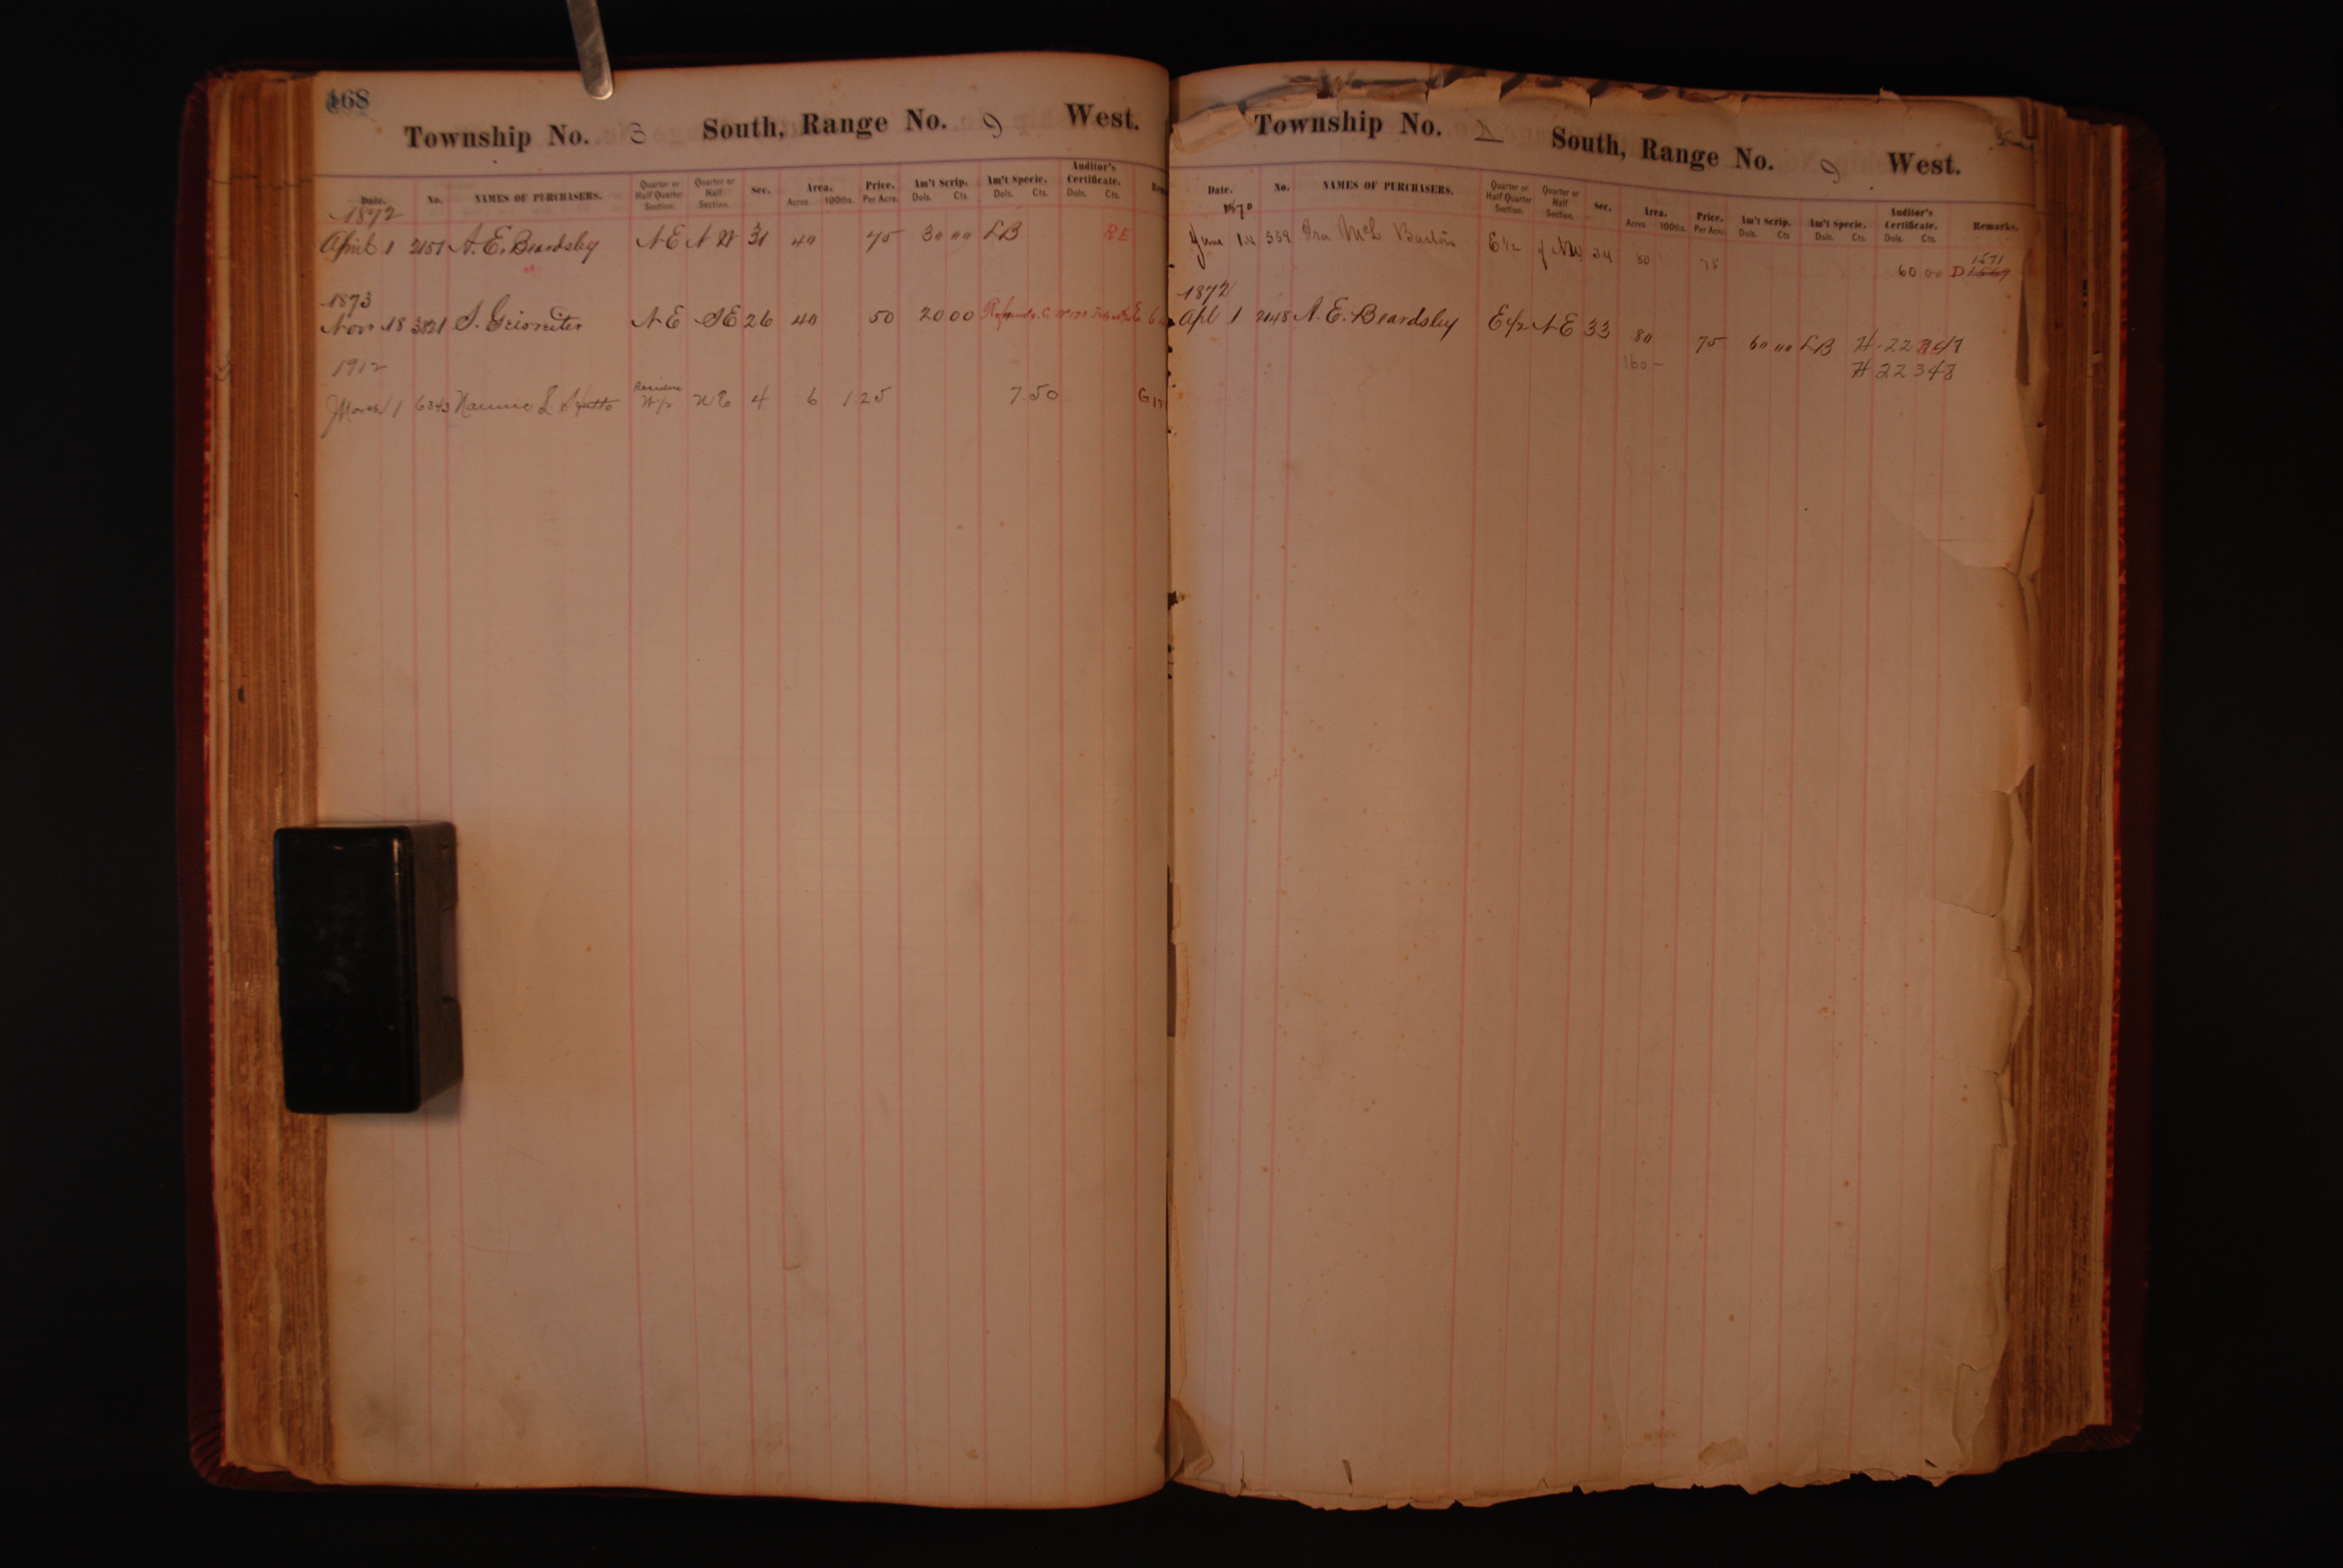 168
Township No. 3 South, Range No. 9 West.
Date. No. NAMES OF PURCHASERS. Quarter or Half Quarter Section. Quarter or Half Section. Sec. Area. Acres 100ths. Price. Per Acre. Am't Scrip. Dols. Cts. Am't Specie. Dols. Cts. Auditor's Certificate. Dols. Cts.
1872
April 1 2151 A. E. Beardsley NE NW 31 40 75 30 00 LB RE
1873
Nov 18 3821 S. NE SE 26 40 50 20 00
1912
March 1 6343 W/2 NE 4 6 1.25 7.50
Township No. South, Range No. 9 West.
Date. No. NAMES OF PURCHASERS. Quarter or Half Quarter Section. Quarter or Half Section. Sec. Area. Acres 100ths. Price. Per Acre. Am't Scrip. Dols. Cts Am't Specie. Dols. Cts. Auditor's Certificate. Dols. Cts. Remarks.
1870
June 14 559 E 1/2 of NW 34 80 75 60 00 D 1571
1872
Apl 1 2148 A. E. Beardsley E 1/2 NE 33 80 75 60 00 LB
160 - H 22348